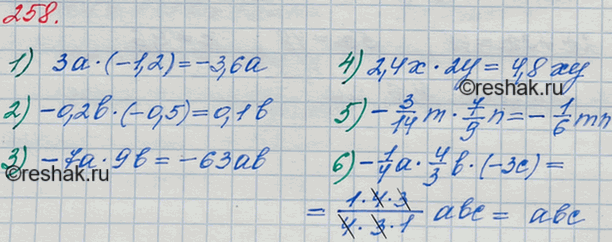 258.
1) 3a·(-1,2)=-3,6a
2) -0,2b·(-0,5)=0,1b
3) -7a·9b=-63ab
4) 2,4x·2y=4,8xy
5) -3/14 m·7/9 n=-1/6 mn
6) -1/4 a·4/3 b·(-3c)=
= 1·4·3/4·3·1 abc = abc
©Reshak.ru
©Reshak.ru